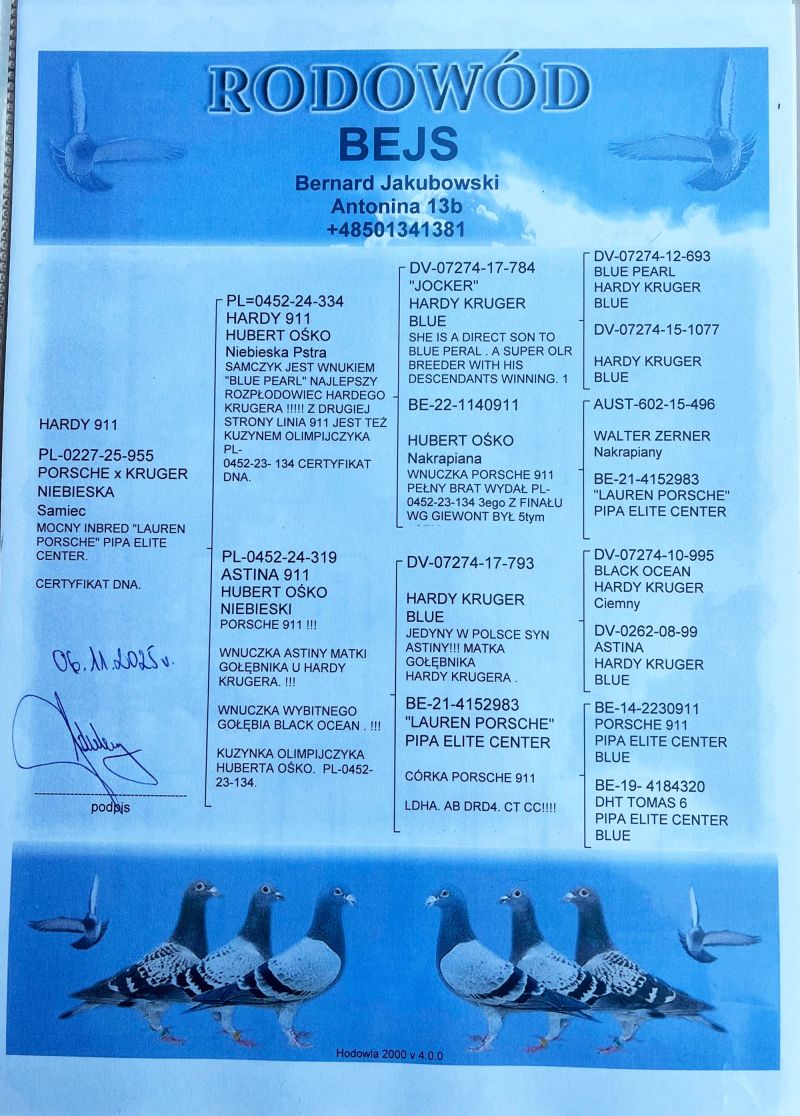 RODOWÓD
BEJS
Bernard Jakubowski
Antonina 13b
+48501341381
HARDY 911
PL-0227-25-955
PORSCHE x KRUGER
NIEBIESKA
Samiec
MOCNY INBRED "LAUREN
PORSCHE" PIPA ELITE
CENTER.
CERTYFIKAT DNA.
06.11.2025 r.
podpis
PL=0452-24-334
HARDY 911
HUBERT OŚKO
Niebieska Pstra
SAMCZYK JEST WNUKIEM
"BLUE PEARL" NAJLEPSZY
ROZPŁODOWIEC HARDEGO
KRUGERA !!!!! Z DRUGIEJ
STRONY LINIA 911 JEST TEŻ
KUZYNEM OLIMPIJCZYKA
PL-
0452-23- 134 CERTYFIKAT
DNA.
PL-0452-24-319
ASTINA 911
HUBERT OŚKO
NIEBIESKI
PORSCHE 911 !!!
WNUCZKA ASTINY MATKI
GOŁĘBNIKA U HARDY
KRUGERA. !!!
WNUCZKA WYBITNEGO
GOŁĘBIA BLACK OCEAN . !!!
KUZYNKA OLIMPIJCZYKA
HUBERTA OŚKO. PL-0452-
23-134.
DV-07274-17-784
"JOCKER"
HARDY KRUGER
BLUE
SHE IS A DIRECT SON TO
BLUE PERAL . A SUPER OLR
BREEDER WITH HIS
DESCENDANTS WINNING. 1
BE-22-1140911
HUBERT OŚKO
Nakrapiana
WNUCZKA PORSCHE 911
PEŁNY BRAT WYDAŁ PL-
0452-23-134 3ego Z FINAŁU
WG GIEWONT BYŁ 5tym
DV-07274-17-793
HARDY KRUGER
BLUE
JEDYNY W POLSCE SYN
ASTINY!!! MATKA
GOŁĘBNIKA
HARDY KRUGERA .
BE-21-4152983
"LAUREN PORSCHE"
PIPA ELITE CENTER
CÓRKA PORSCHE 911
LDHA. AB DRD4. CT CC!!!!
DV-07274-12-693
BLUE PEARL
HARDY KRUGER
BLUE
DV-07274-15-1077
HARDY KRUGER
BLUE
AUST-602-15-496
WALTER ZERNER
Nakrapiany
BE-21-4152983
"LAUREN PORSCHE"
PIPA ELITE CENTER
DV-07274-10-995
BLACK OCEAN
HARDY KRUGER
Ciemny
DV-0262-08-99
ASTINA
HARDY KRUGER
BLUE
BE-14-2230911
PORSCHE 911
PIPA ELITE CENTER
BLUE
BE-19- 4184320
DHT TOMAS 6
PIPA ELITE CENTER
BLUE
Hodowla 2000 v 4.0.0